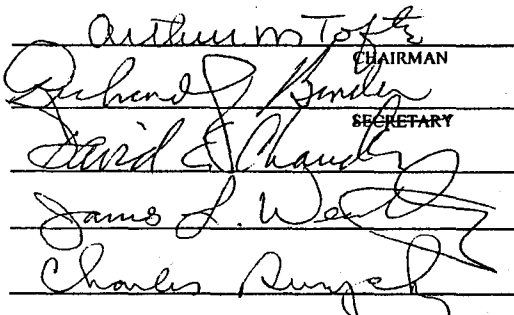 Arthur M Tofte
CHAIRMAN
Richard J Bender
SECRETARY
David E Chandler
James L.
Charles